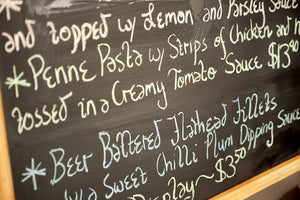 and topped w/ Lemon and Parsley Sauce
* Penne Pasta w/ Strips of Chicken and h
tossed in a Creamy Tomato Sauce $13.90
* Beer Battered Flathead Fillets
w/ a Sweet Chilli Plum Dipping Sauce
Display ~ $3.50